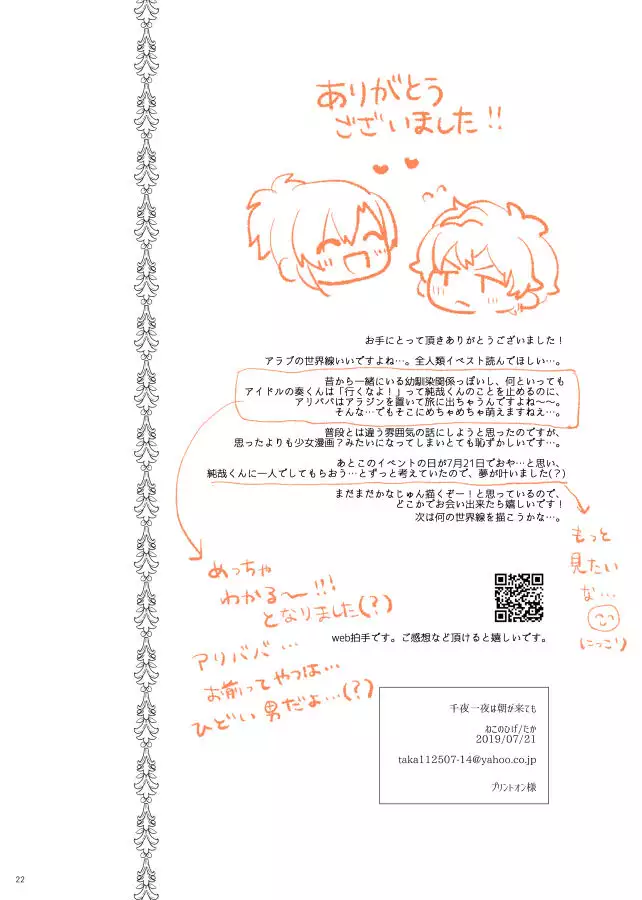 ありがとう
ございました!!
お手にとって頂きありがとうございました！
アラブの世界線いいですよね…。全人類イベスト読んでほしい…。
昔から一緒にいる幼馴染関係っぽいし、何といっても
アイドルの奏くんは「行くなよ！」って純哉くんのことを止めるのに、
アリババはアラジンを置いて旅に出ちゃうんですよね～～。
そんな…でもそこにめちゃめちゃ萌えますねえ…。
普段とは違う雰囲気の話にしようと思ったのですが、
思ったよりも少女漫画？みたいになってしまいとても恥ずかしいです…。
あとこのイベントの日が7月21日でおや…と思い、
純哉くんに一人でしてもらおう…とずっと考えていたので、夢が叶いました(？)
まだまだかなじゅん描くぞー！と思っているので、
どこかでお会い出来たら嬉しいです！
次は何の世界線を描こうかな…。
もっと
見たい
な…
(にっこり)
めっちゃ
わかる〜!!!
となりました(?)
アリババ…
お前ってやつは…
ひどい男だよ…(?)
web拍手です。ご感想など頂けると嬉しいです。
千夜一夜は朝が来ても
ねこのひげ/たか
2019/07/21
taka112507-14@yahoo.co.jp
プリントオン様
22